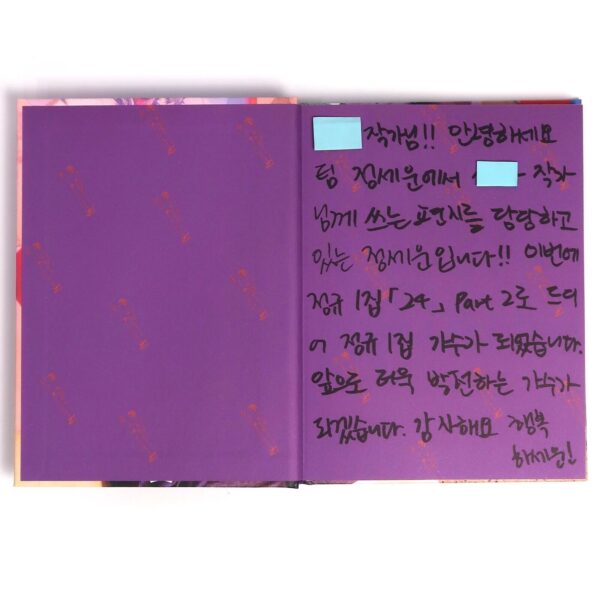 작가님!! 안녕하세요
팀 정세운에서 작가
님께 쓰는 편지를 담당하고
있는 정세운입니다!! 이번에
정규 1집 「24」 Part 2로 드디
어 정규 1집 가수가 되었습니다.
앞으로 더욱 발전하는 가수가
되겠습니다. 감사해요 행복
하세운!